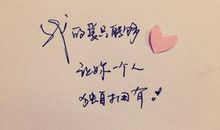 我的爱只能够
让你一个人
独自拥有